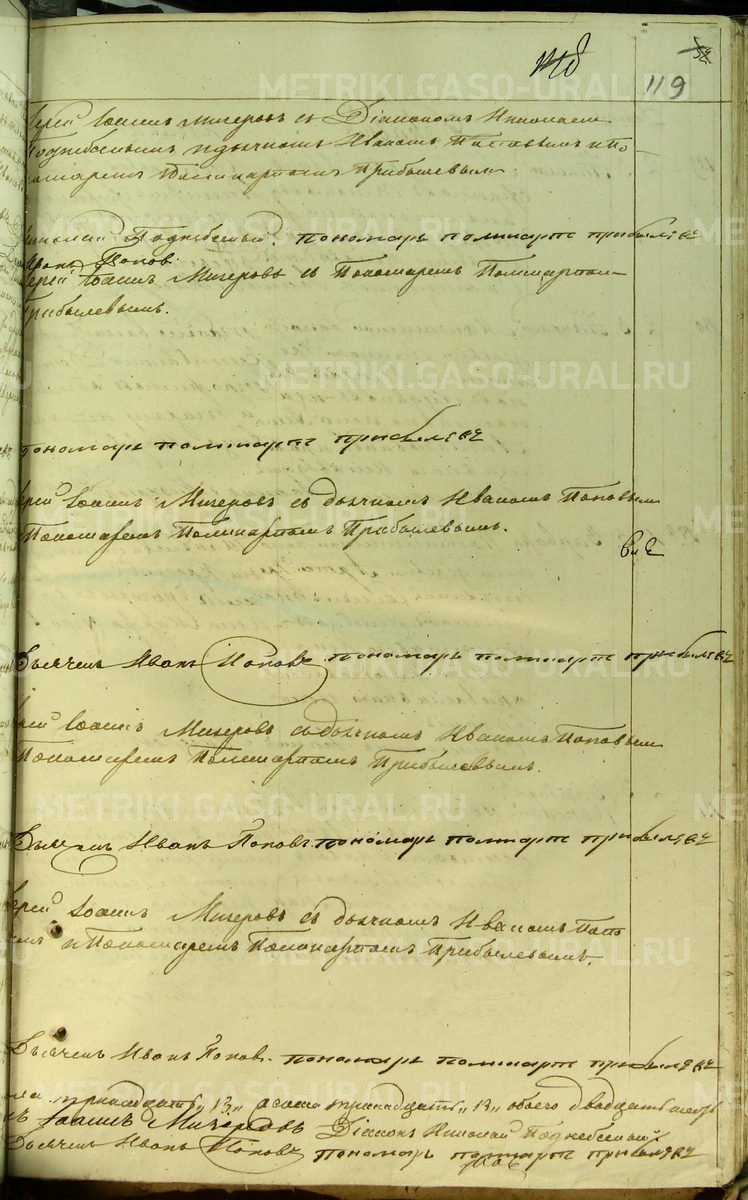 119
ерей Іоаннъ Мичеровъ съ Діакономъ Николаемъ
Поднебеснымъ и дьячкомъ Иваномъ Поповымъ и По
номаремъ Поликарпомъ Прибылевымъ.
Николай Поднебесный. пономарь поликарпъ прибылевъ
Иванъ Поповъ.
ерей Іоаннъ Мичеровъ съ Пономаремъ Поликарпом
Прибылевымъ.
пономарь поликарпъ прибылевъ
ерей Іоаннъ Мичеровъ съ дьячкомъ Иваномъ Поповым
Пономаремъ Поликарпомъ Прибылевымъ.
Дьячекъ Иванъ Поповъ пономарь поликарпъ прибылевъ
ерей Іоаннъ Мичеровъ съ дьячкомъ Иваномъ Поповым
Пономаремъ Поликарпомъ Прибылевымъ.
Дьячекъ Иванъ Поповъ пономарь поликарпъ прибылевъ
ерей Іоаннъ Мичеровъ съ дьячкомъ Иваномъ Попо
вымъ и Пономаремъ Поликарпомъ Прибылевымъ.
Дьячекъ Иванъ Поповъ. пономарь поликарпъ прибылевъ
тринадцать „13„ тринадцать „13„ обоего двадцать шесть
Іоаннъ Мичеровъ Діаконъ Николай Поднебесный
Дьячекъ Иванъ Поповъ пономарь поликарпъ прибылевъ
METRIKI.GASO-URAL.RU